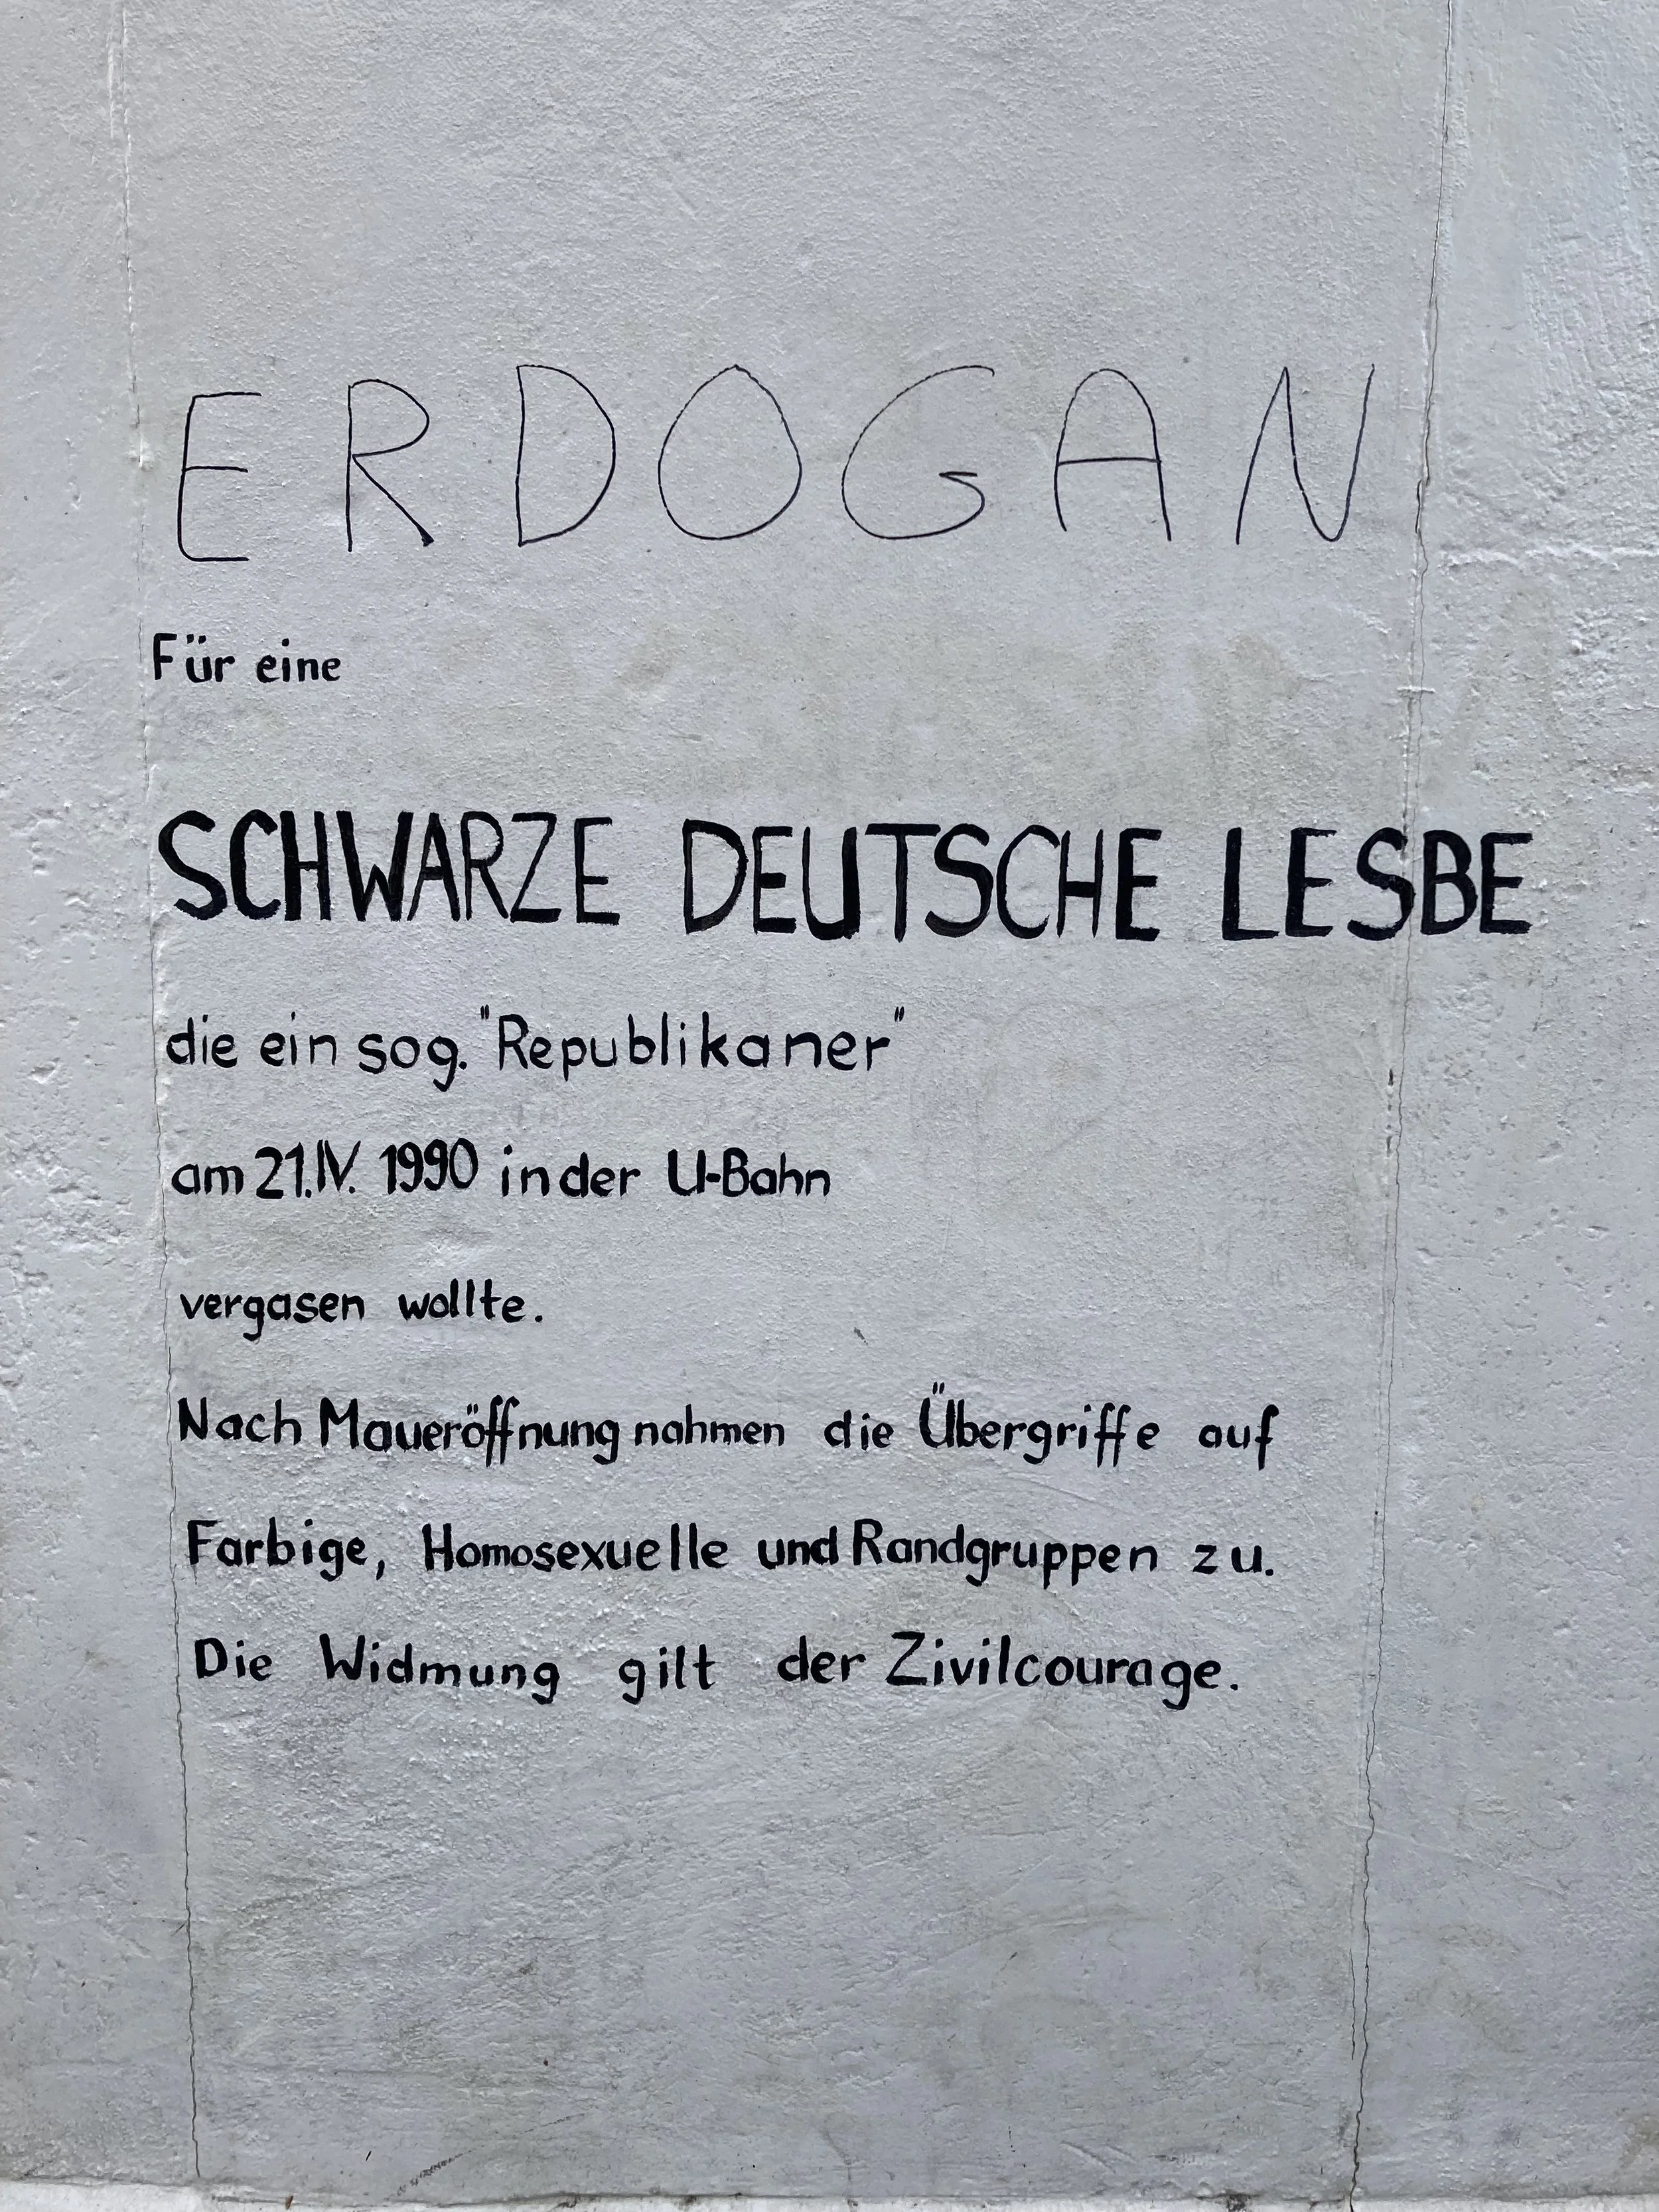 ERDOGAN
Für eine
SCHWARZE DEUTSCHE LESBE
die ein sog. "Republikaner"
am 21.IV. 1990 in der U-Bahn
vergasen wollte.
Nach Maueröffnung nahmen die Übergriffe auf
Farbige, Homosexuelle und Randgruppen zu.
Die Widmung gilt der Zivilcourage.